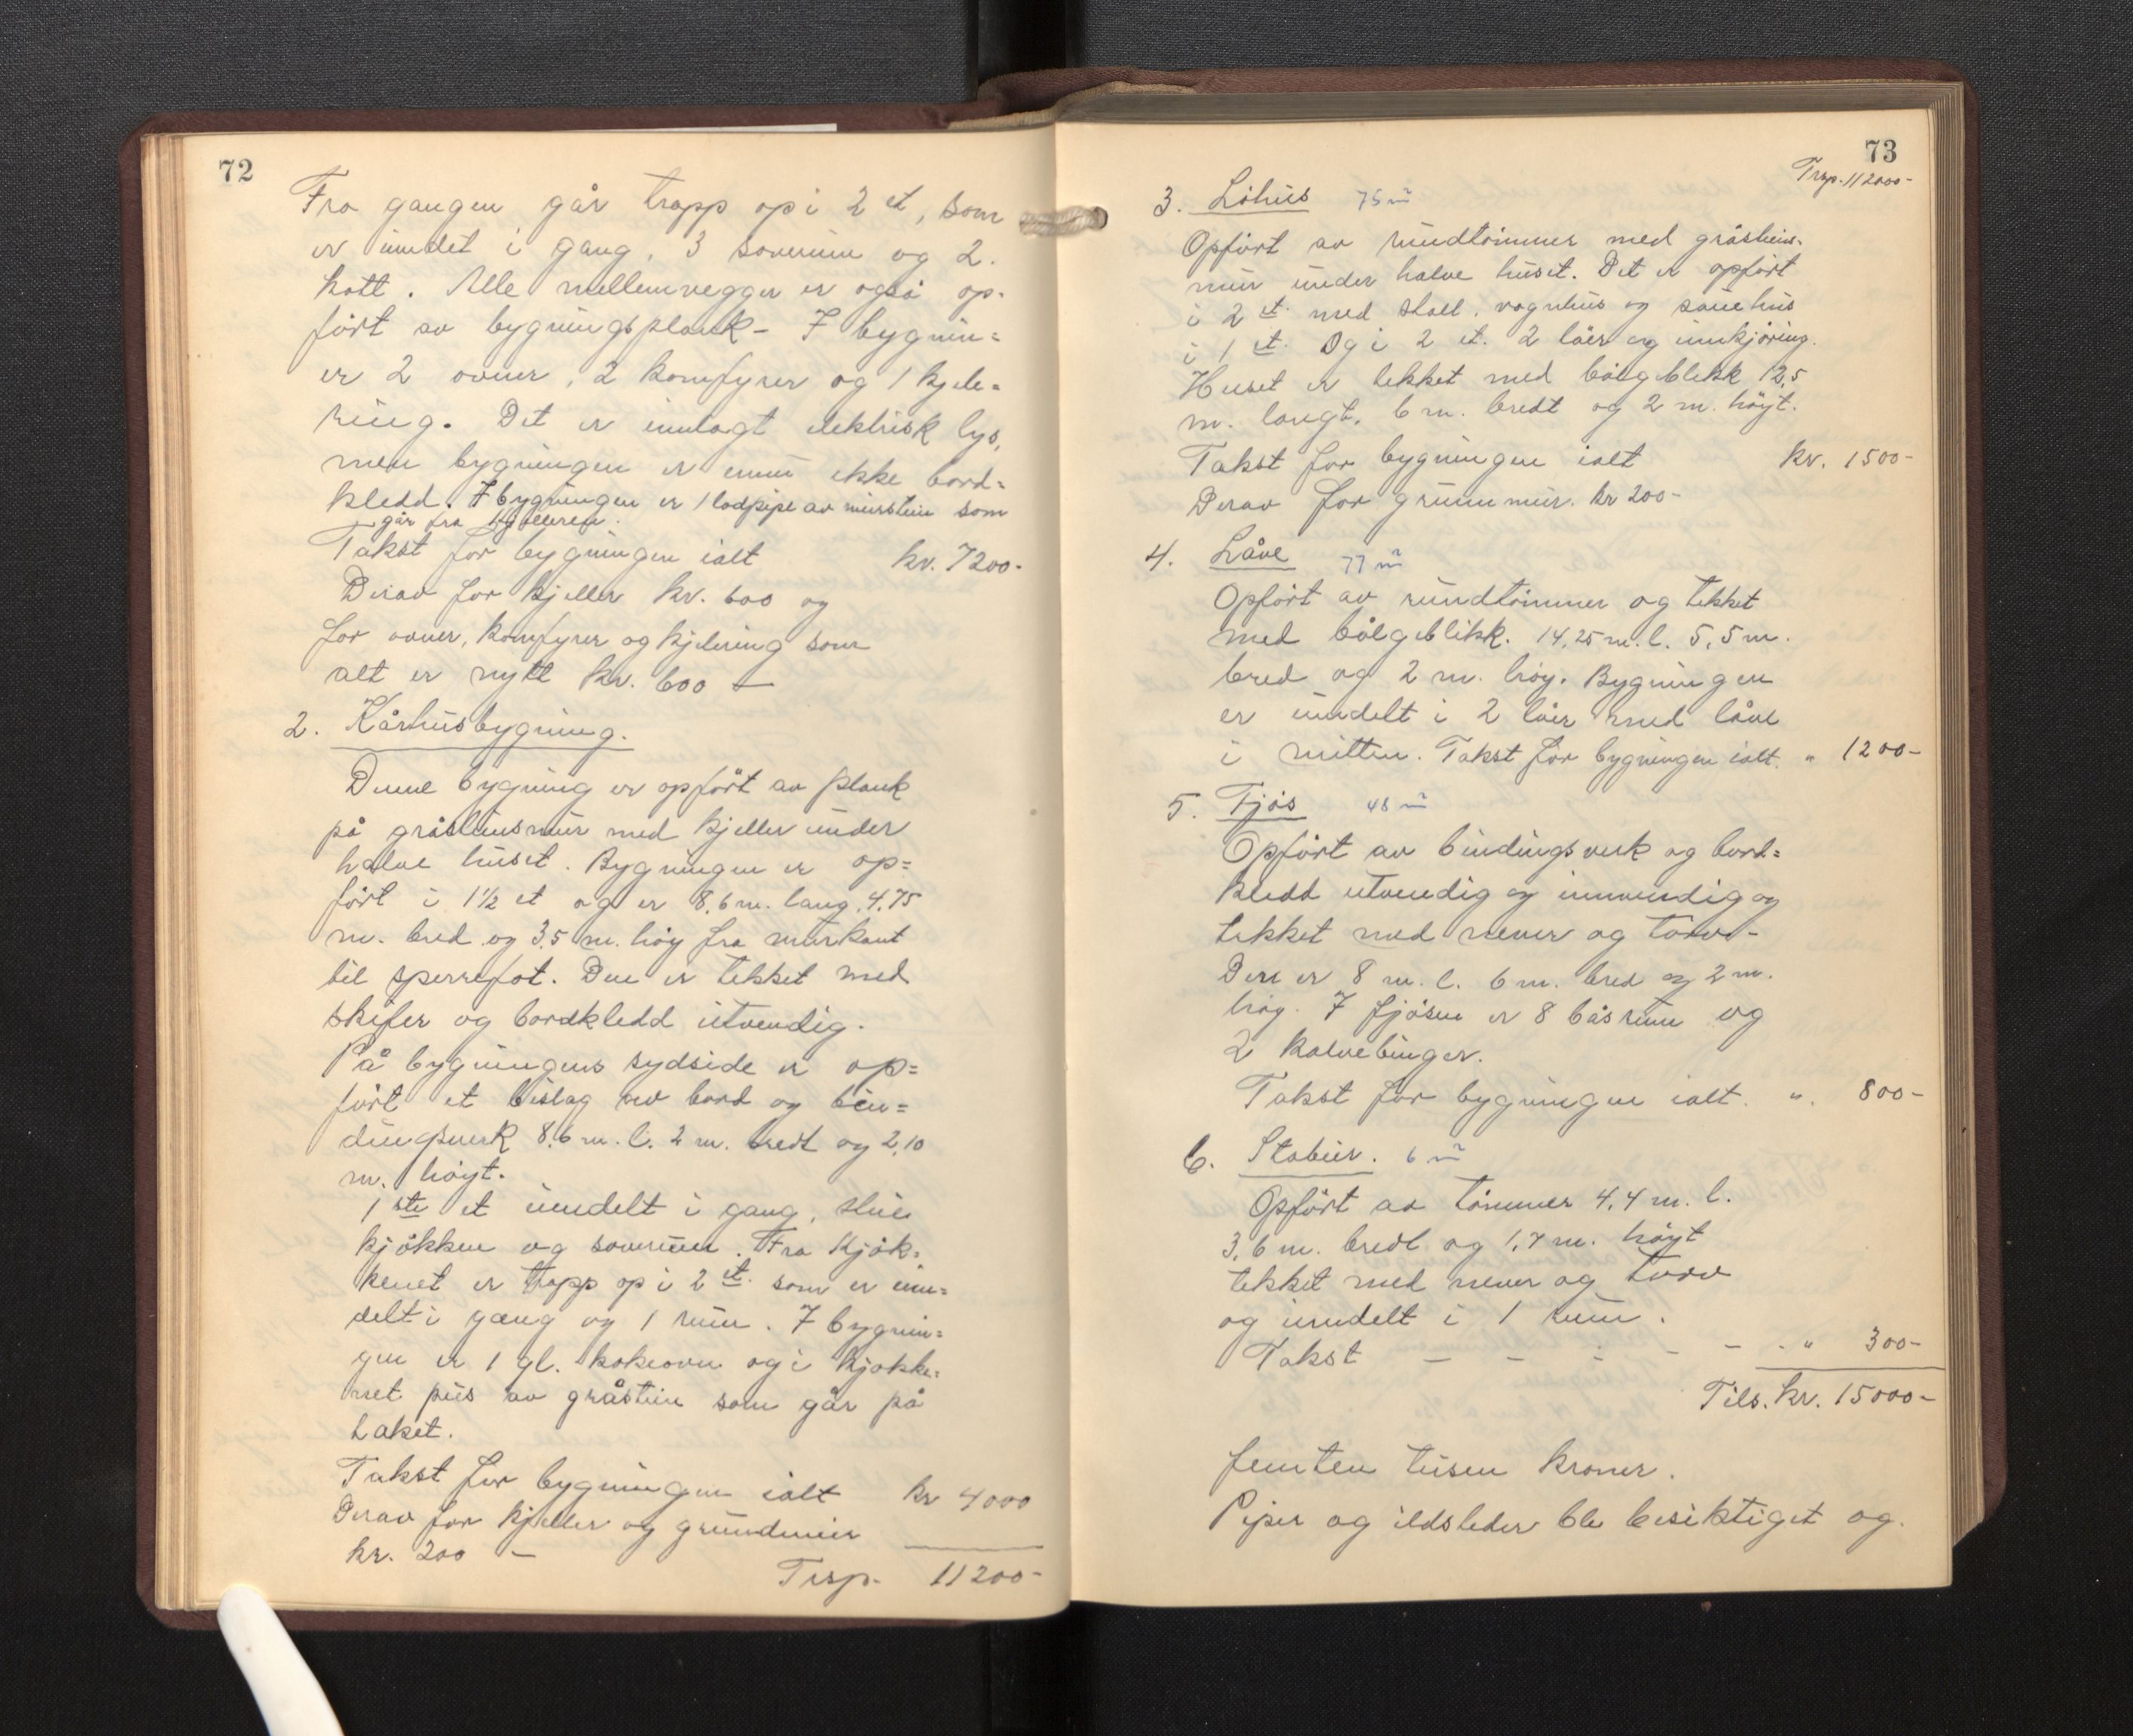 72
Fra gangen går trapp op i 2 et, som
er inndet i gang, 3 soverum og 2
kott. Alle mellemvegger er også op-
ført av bygningsplank - I bygnin=
er 2 ovner, 2 komfyrer og 1 kjele=
ring. Det er innlagt elektrisk lys,
men bygningen er ennu ikke bord=
kledd. I bygningen er 1 lodpipe av murstein som
går fra kjelleren.
Takst for bygningen ialt kr. 7200-
Derav for kjeller kr. 600 og
for ovner, komfyrer og kjelering som
alt er nytt kr. 600 —
2. Kårhusbygning.
Denne bygning er opført av plank
på gråsteinsmur med kjeller under
halve huset. Bygningen er op=
ført i 1½ et og er 8,6 m. lang, 4,75
m. bred og 3,5 m. høy fra murkant
til sperrefot. Den er tekket med
skifer og bordkledd utvendig.
På bygningens sydside er op=
ført et bislag av bord og bin=
dingsverk 8,6 m. l. 2 m. bredt og 2,10
m. høyt.
1ste et inndelt i gang, stue
kjøkken og soverum. Fra kjøk=
kenet er trapp op i 2 et. som er inn=
delt i gang og 1 rum. I bygnin=
gen er 1 gl. kokeovn og i kjøkke=
net peis av gråstein som går på
taket.
Takst for bygningen ialt kr 4000
Derav for kjeller og grundmur
kr. 200 —
Trsp. 11200-
73
Trsp. 11200-
3. Löhus 75 m²
Opført av rundtømmer med gråstein-
mur under halve huset. Det er opført
i 2 et. med stall, vognhus og sauehus
i 1 et. Og i 2 et. 2 löer og innkjøring.
Huset er tekket med bølgeblekk 12,5
m. langt, 6 m. bredt og 2 m. høyt.
Takst for bygningen ialt kr. 1500-
Derav for grunnmur. kr 200-
4. Låve 77 m²
Opført av rundtømmer og tekket
med bølgeblikk. 14,25 m. l. 5,5 m.
bred og 2 m. høy. Bygningen
er inndelt i 2 löer med låve
i mitten. Takst for bygningen ialt. " 1200-
5. Fjøs 48 m²
Opført av bindingsverk og bord=
kledd utvendig og innvendig og
tekket med never og torv-
Den er 8 m. l. 6 m. bred og 2 m.
høy. I fjøsen er 8 båsrum og
2 kalvebinger.
Takst for bygningen ialt. ". 800-
6. Stabur. 6 m²
Opført av tømmer 4,4 m. l.
3,6 m. bredt og 1,7 m. høyt
tekket med never og torv
og inndelt i 1 rum.
Takst — — - - — - " 300-
Tils. kr. 15000-
femten tusen kroner.
Piper og ildsteder ble besiktiget og